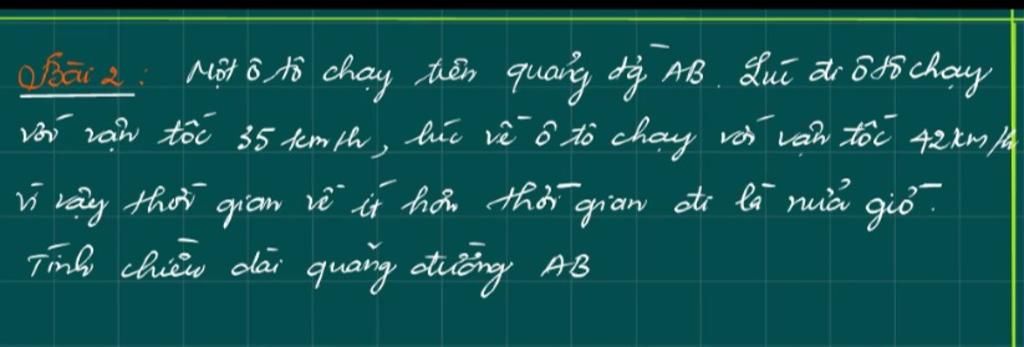 Bài 2: Một ô tô chạy trên quảng đg̀ AB. Lúc đi ô tô chạy
với vận tốc 35 km/h, lúc về ô tô chạy với vận tốc 42 km/h
vì vậy thời gian về ít hơn thời gian đi là nửa giờ.
Tính chiều dài quãng đường AB